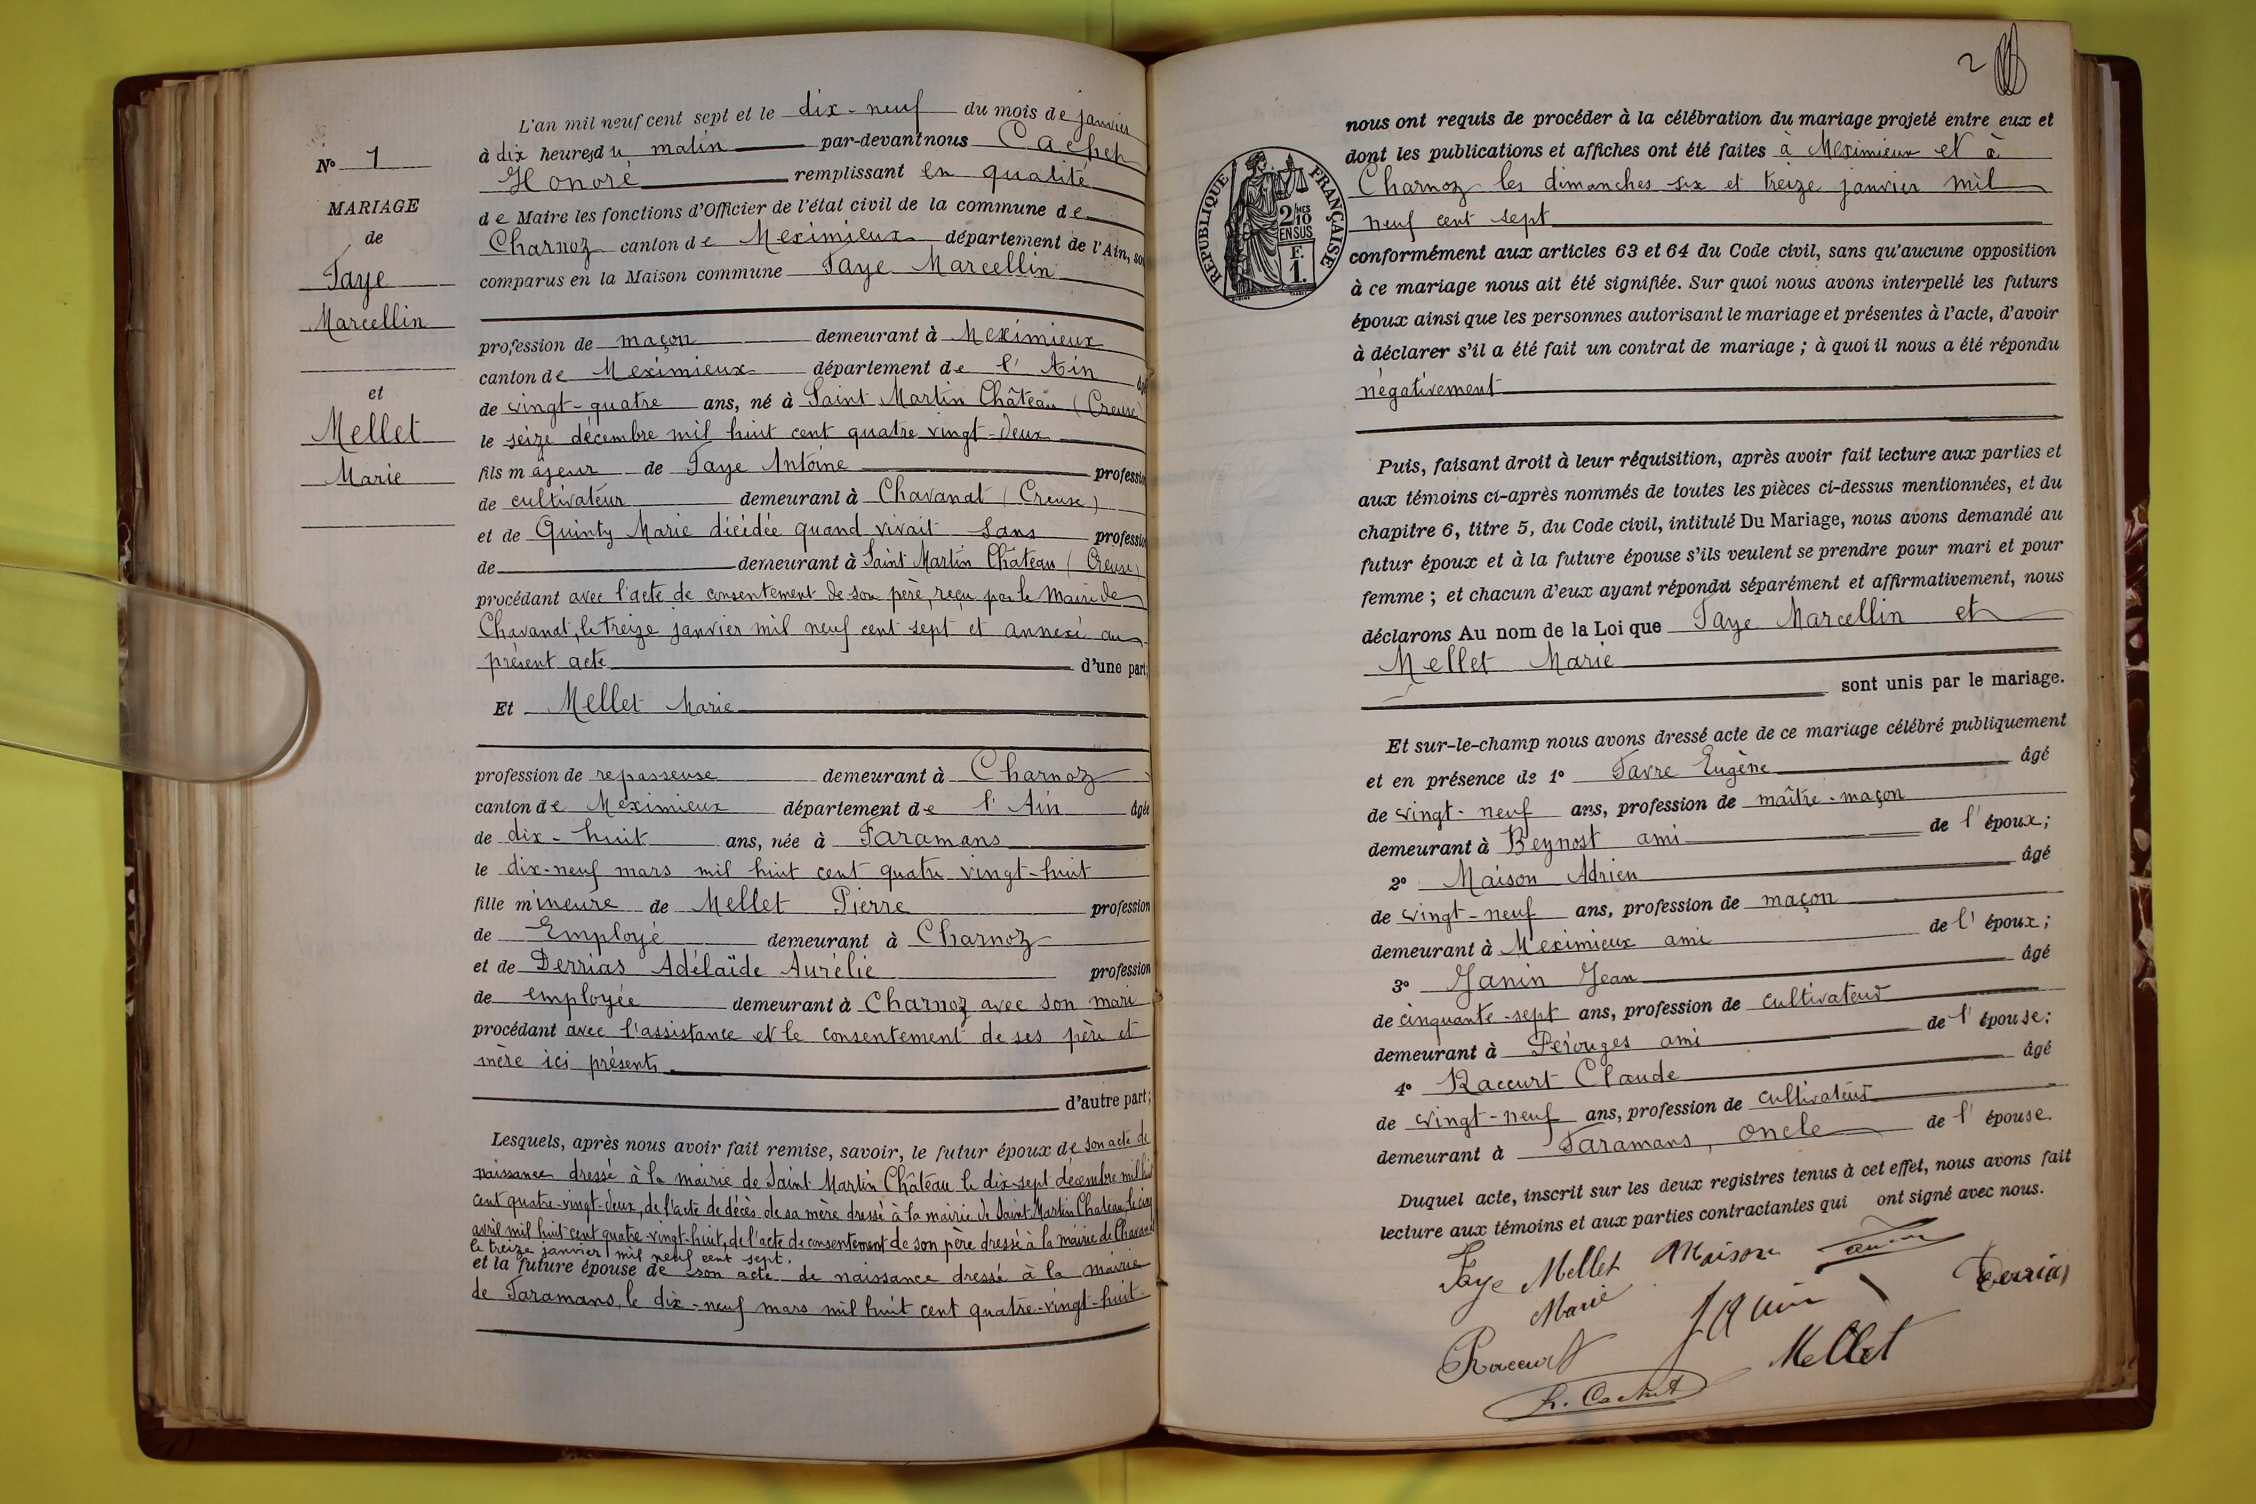 N° 1
MARIAGE
de
Faye
Marcellin
et
Mellet
Marie
L'an mil neuf cent sept et le dix-neuf du mois de janvier
à dix heures du matin par-devant nous Cachet
Honoré remplissant en qualité
de Maire les fonctions d'Officier de l'état civil de la commune de
Charnoz canton de Meximieux département de l'Ain, so
comparus en la Maison commune Faye Marcellin
profession de maçon demeurant à Meximieux
canton de Meximieux département de l'Ain âgé
de vingt-quatre ans, né à Saint Martin Château (Creuse)
le seize décembre mil huit cent quatre vingt-deux
fils majeur de Faye Antoine profession
de cultivateur demeurant à Chavanat (Creuse)
et de Quinty Marie décédée quand vivait sans profession
de demeurant à Saint Martin Château (Creuse)
procédant avec l'acte de consentement de son père, reçu par le Maire de
Chavanat, le treize janvier mil neuf cent sept et annexé au
présent acte d'une part;
Et Mellet Marie
profession de repasseuse demeurant à Charnoz
canton de Meximieux département de l'Ain âgée
de dix-huit ans, née à Faramans
le dix-neuf mars mil huit cent quatre vingt-huit
fille mineure de Mellet Pierre profession
de Employé demeurant à Charnoz
et de Derrias Adélaïde Aurélie profession
de employée demeurant à Charnoz avec son mari
procédant avec l'assistance et le consentement de ses père et
mère ici présents
d'autre part;
Lesquels, après nous avoir fait remise, savoir, le futur époux de son acte de
naissance dressé à la mairie de Saint Martin Château le dix-sept décembre mil huit
cent quatre-vingt-deux, de l'acte de décès de sa mère dressé à la mairie de Saint Martin Château, le cinq
avril mil huit cent quatre-vingt-huit, de l'acte de consentement de son père dressé à la mairie de Chavanat
le treize janvier mil neuf cent sept.
et la future épouse de son acte de naissance dressé à la mairie
de Faramans, le dix-neuf mars mil huit cent quatre-vingt-huit.
2
RÉPUBLIQUE FRANÇAISE
2/10 MES
EN SUS
F.
1.
nous ont requis de procéder à la célébration du mariage projeté entre eux et
dont les publications et affiches ont été faites à Meximieux et à
Charnoz les dimanches six et treize janvier mil
neuf cent sept
conformément aux articles 63 et 64 du Code civil, sans qu'aucune opposition
à ce mariage nous ait été signifiée. Sur quoi nous avons interpellé les futurs
époux ainsi que les personnes autorisant le mariage et présentes à l'acte, d'avoir
à déclarer s'il a été fait un contrat de mariage ; à quoi il nous a été répondu
négativement
Puis, faisant droit à leur réquisition, après avoir fait lecture aux parties et
aux témoins ci-après nommés de toutes les pièces ci-dessus mentionnées, et du
chapitre 6, titre 5, du Code civil, intitulé Du Mariage, nous avons demandé au
futur époux et à la future épouse s'ils veulent se prendre pour mari et pour
femme ; et chacun d'eux ayant répondu séparément et affirmativement, nous
déclarons Au nom de la Loi que Faye Marcellin et
Mellet Marie
sont unis par le mariage.
Et sur-le-champ nous avons dressé acte de ce mariage célébré publiquement
et en présence de 1° Favre Eugène âgé
de vingt-neuf ans, profession de maître-maçon
demeurant à Beynost ami de l'époux;
2° Maison Adrien âgé
de vingt-neuf ans, profession de maçon
demeurant à Meximieux ami de l'époux;
3° Janin Jean âgé
de cinquante-sept ans, profession de cultivateur
demeurant à Pérouges ami de l'épouse;
4° Raccurt Claude âgé
de vingt-neuf ans, profession de cultivateur
demeurant à Faramans, oncle de l'épouse.
Duquel acte, inscrit sur les deux registres tenus à cet effet, nous avons fait
lecture aux témoins et aux parties contractantes qui ont signé avec nous.
Faye Mellet Maison
Marie Janin Derrias
Raccurt Mellet
h. Cachet